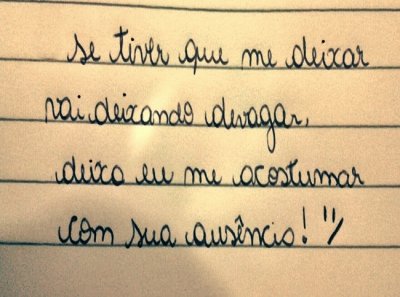 se tiver que me deixar
vai deixando devagar,
deixa eu me acostumar
com sua ausência!"